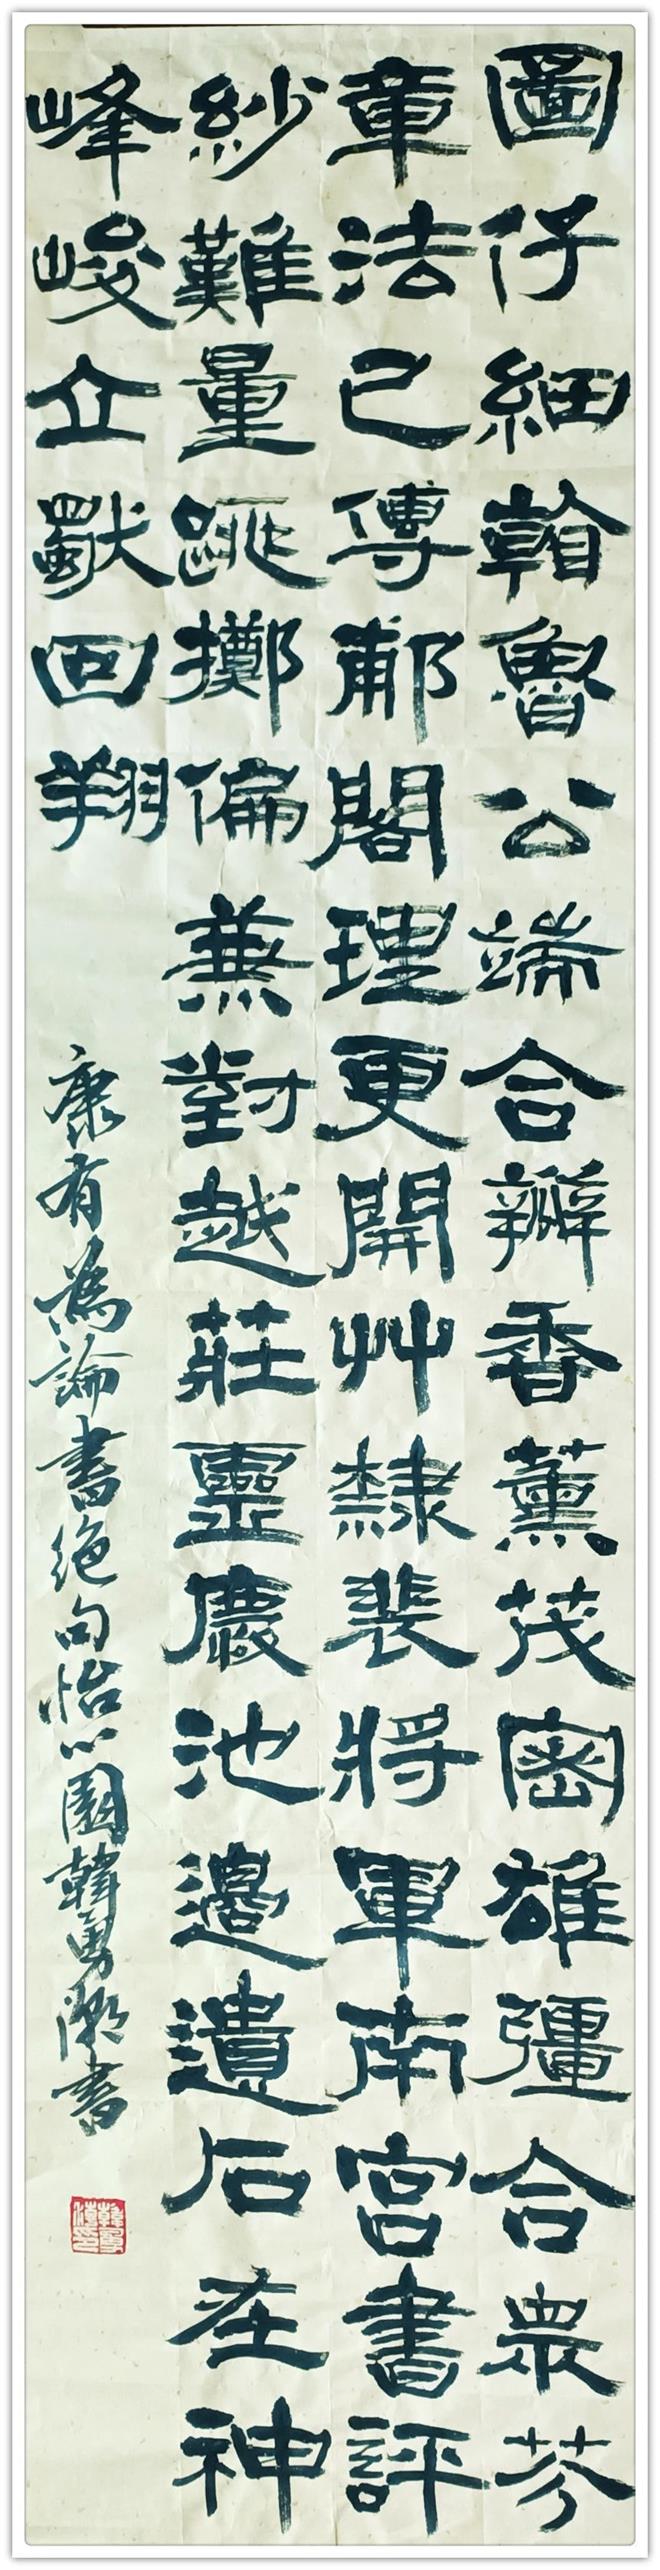 圖仔細看魯公端合瓣香薰茂密雄彊合眾芬
章法已傳郙閣理更開艸隸裴將軍南宮書評
紗難量跳擲偏兼對越莊靈池邊遺石在神
峰峻立獸回翔
康有為論書絕句怡心園韓勇書